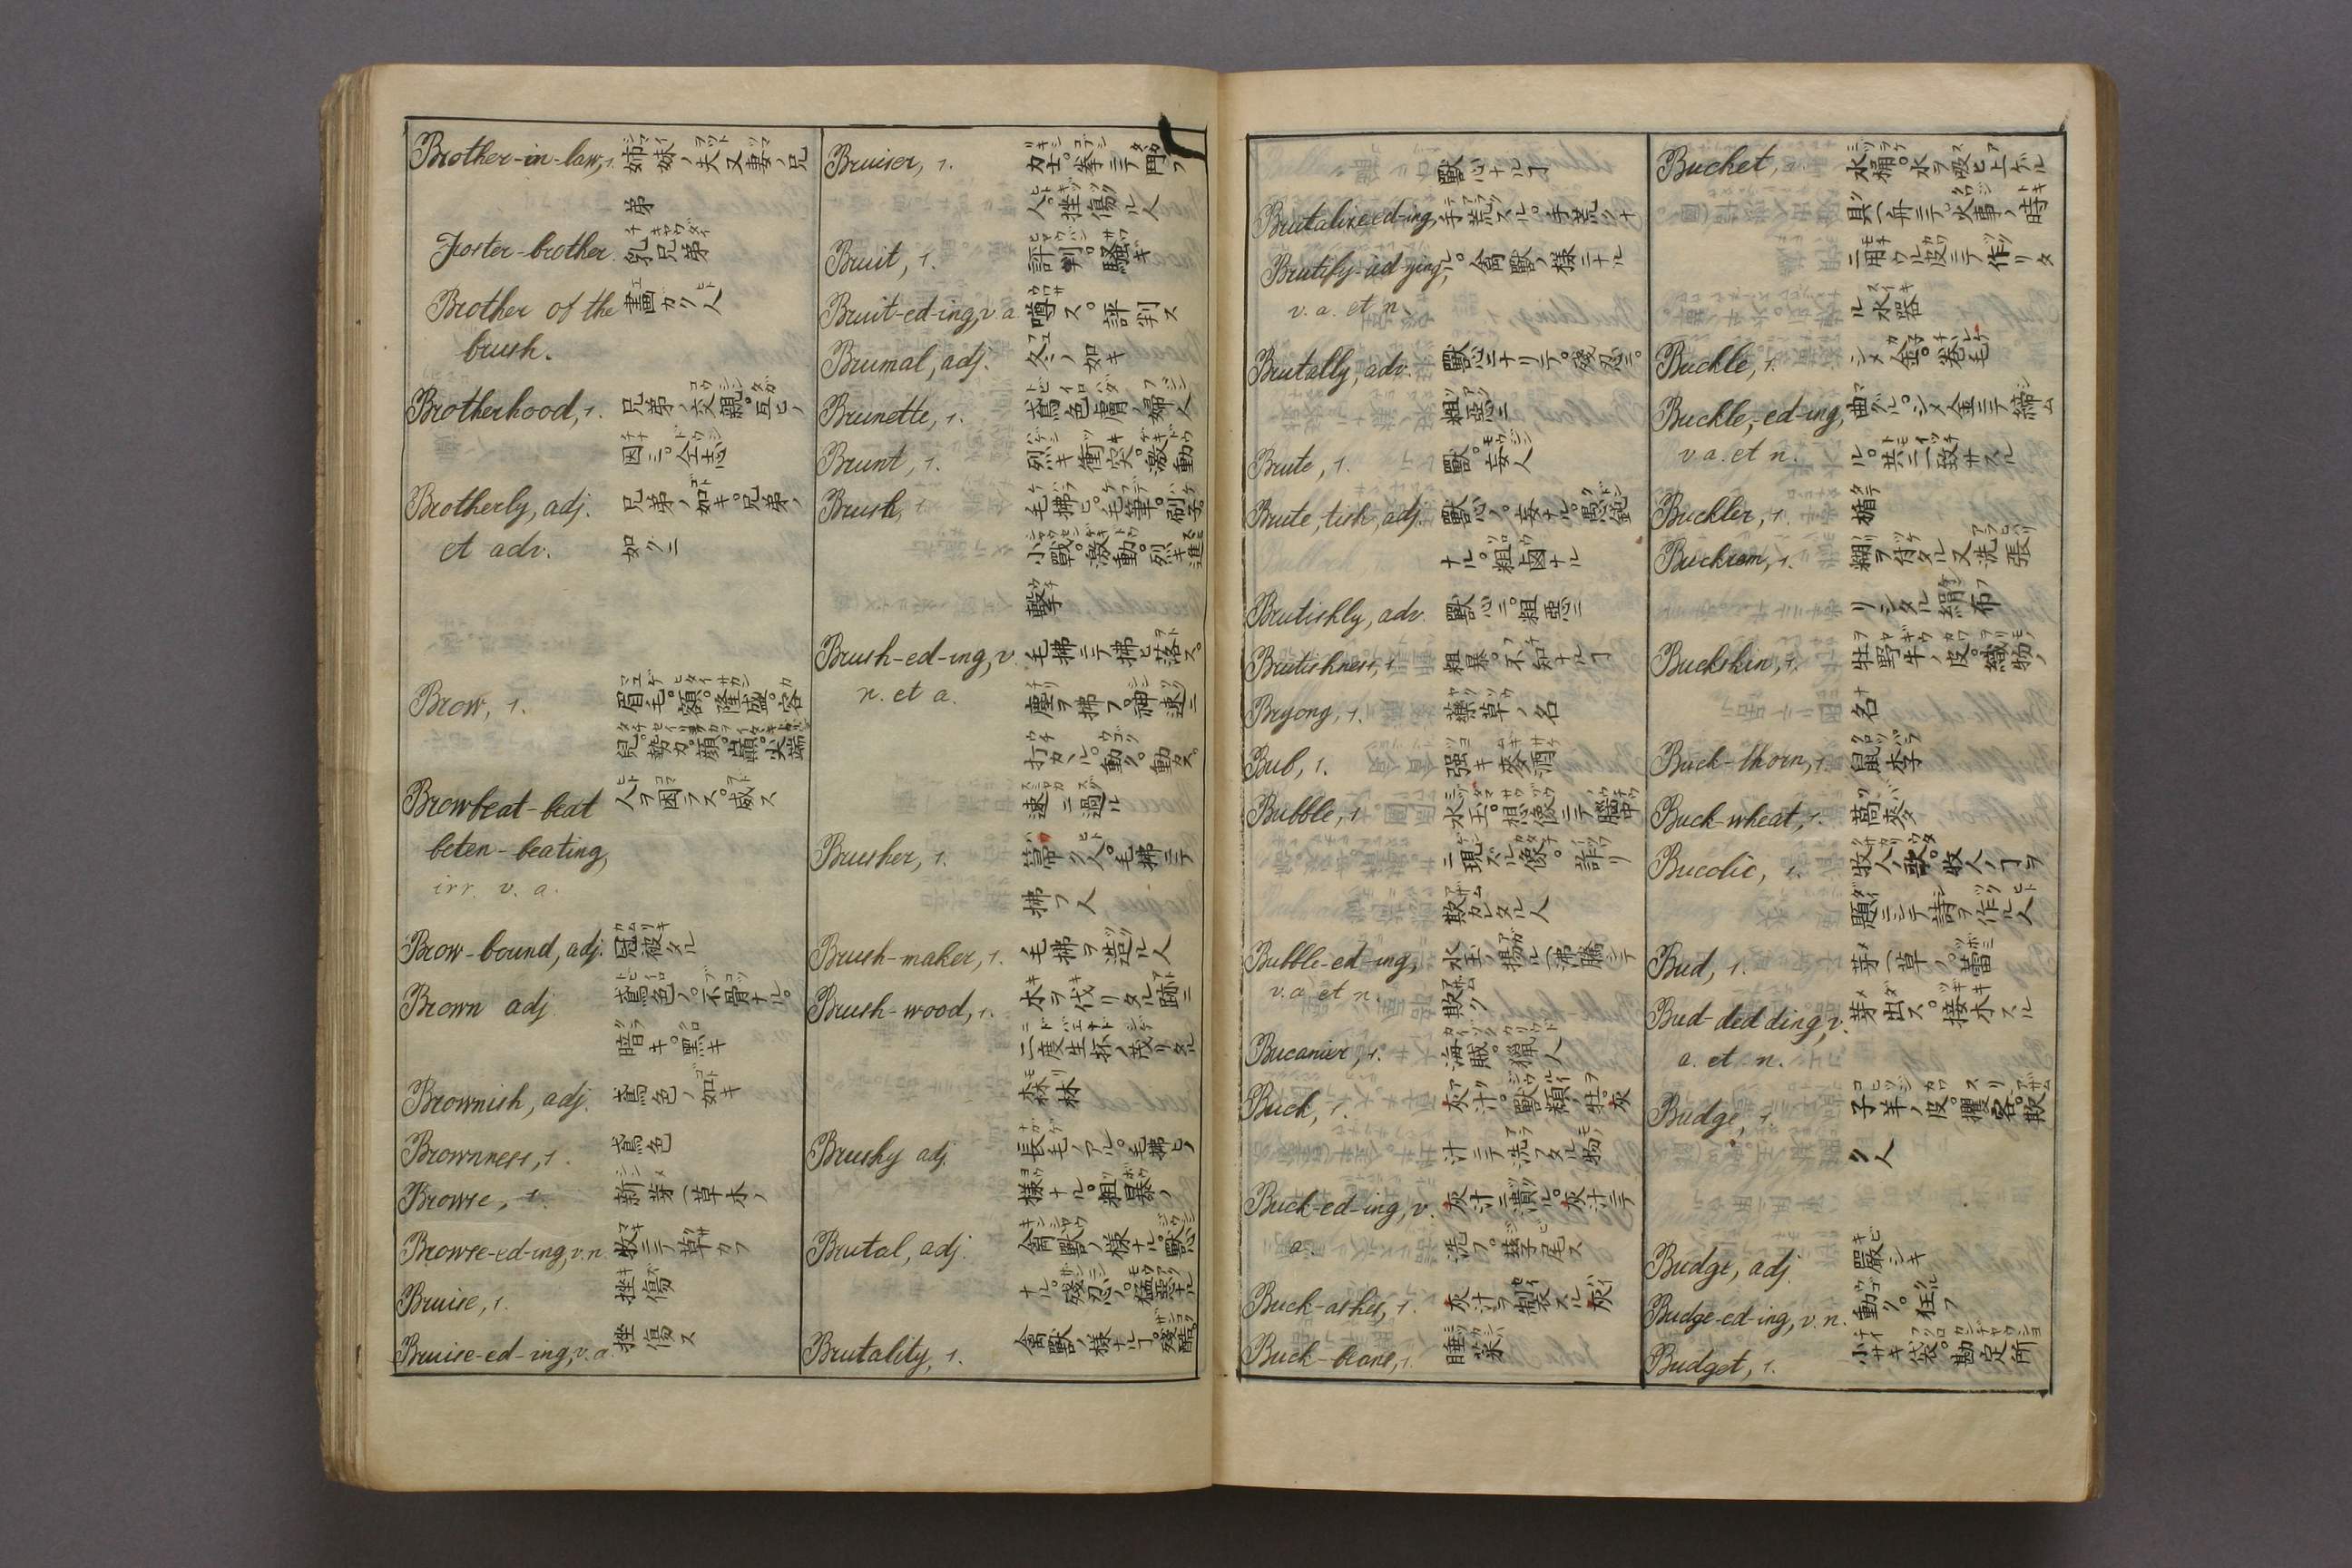 Brother-in-law, s. 姉妹ノ夫又妻ノ兄
弟
Foster-brother. 乳兄弟
Brother of the 畫カク人
brush.
Brotherhood, s. 兄弟ノ交親。互ヒノ
因ミ。仝志
Brotherly, adj. 兄弟ノ如キ。兄弟ノ
et adv. 如クニ
Brow, s. 眉毛。額。隆盛。容
皃。勢力。顔。巓。尖端
Browbeat-beat 人ヲ困ラス。威ス
beten-beating,
irr. v. a.
Brow-bound, adj. 冠被タル
Brown adj 鳶色ノ。不骨ナル。
暗キ。黒キ
Brownish, adj. 鳶色ノ如キ
Brownness, s. 鳶色
Browse, s. 新芽(草木ノ
Browse-ed-ing, v.n. 牧ニテ草カフ
Bruise, s. 挫傷
Bruise-ed-ing, v.a. 挫傷ス
Bruiser, s. 力士。拳ニテ鬥フ
人。挫傷ル人
Bruit, s. 評判。騒ギ
Bruit-ed-ing, v.a 噂ス。評判ス
Brumal, adj. 冬ノ如キ
Brunette, s. 鳶色膚ノ婦人
Brunt, s. 烈キ衝突。激動
Brush, s. 毛拂ヒ。毛筆。刷子。
小戰。激動。烈キ進
撃
Brush-ed-ing, v. 毛拂ニテ拂ヒ落ス。
n. et a. 塵ヲ拂フ。神速ニ
打カヽル。動ク。動カス
速ニ過ル
Brusher, s. 箒ク人。毛拂ニテ
拂フ人
Brush-maker, s. 毛拂ヲ造ル人
Brush-wood, s. 木ヲ伐リタル跡ニ
二度生抔ノ茂リタル
森林
Brushy adj. 長毛ノアル。毛拂ヒノ
様ナル。粗暴ノ
Brutal, adj. 禽獸ノ様ナル。獸心
ナル。殘忍ノ。猛惡ナル
Brutality, s. 禽獸ノ様ナルヿ。殘酷。
獸心ナルヿ
Brutalize-ed-ing, 手荒スル。手荒クナ
Brutify-ied-ying, ル。禽獸ノ様ニナル
v. a. et n.
Brutally, adv. 獸心ニナリテ。殘忍ニ。
粗惡ニ
Brute, s. 獸。妄人
Brute, tish, adj. 獸心ノ。妄ナル。愚鈍
ナル。粗鹵ナル
Brutishly, adv. 獸心ニ。粗惡ニ
Brutishness, s. 粗暴。不知ナルヿ
Bryony, s. 藥草ノ名
Bub, s. 强キ麥酒
Bubble, s. 水玉。想像ニテ腦中
ニ現ズル像。詐リ
欺カレタル人
Bubble-ed-ing, 水玉ノ揚ル(沸騰シテ
v.a. et n. 欺ク
Bucanier, s. 海賊。獵人
Buck, s. 灰汁。獸類ノ牡。灰
汁ニテ洗フタル物
Buck-ed-ing, v. 灰汁ニ漬ル。灰汁ニテ
a. 洗フ。孳尾ス
Buck-ashes, s. 灰汁ヲ製スル灰
Buck-beane, s. 睡菜
Buchet, 水桶。水ヲ吸ヒ上ゲル
具(舟ニテ。火事ノ時
ニ用ウル皮ニテ作リタ
ル水器
Buckle, s. シメ金。卷毛
Buckle,-ed-ing, 曲グル。シメ金ニテ締ム
v.a. et n. ル。共ニ一致サスル
Buckler, s. 楯
Buckram, s. 糊ヲ付タル又洗張
リシタル絹布
Buckskin, s. 牡野牛ノ皮。織物ノ
名
Buck-thorn, s. 鼠李
Buck-wheat, s. 蕎麥
Bucolic, s. 牧人ノ歌。牧人ノヿヲ
題ニシテ詩ヲ作ル人
Bud, s. 芽(草ノ。蕾
Bud-ded ding, v. 芽出ス。接木スル
a. et n.
Budge, s. 子羊ノ皮。攫客。欺
ク人
Budge, adj. 嚴シキ
Budge-ed-ing, v. n. 動ク。狂フ
Budget, s. 小サキ袋。勘定所